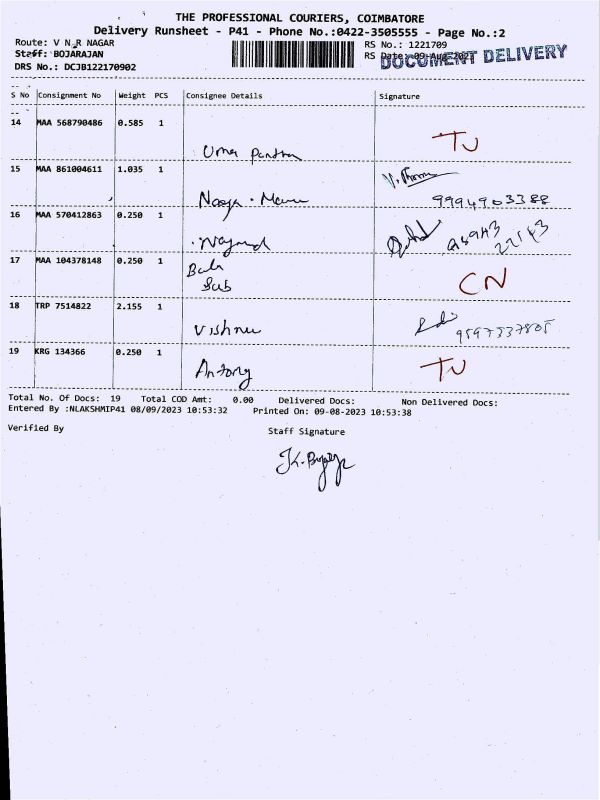 THE PROFESSIONAL COURIERS, COIMBATORE
Delivery Runsheet - P41 - Phone No.:0422-3505555 - Page No.:2
Route: V N R NAGAR
RS No.: 1221709
Staff: BOJARAJAN
RS Date: 09-Aug-2023
DOCUMENT DELIVERY
DRS No.: DCJB122170902
S No Consignment No Weight PCS Consignee Details Signature
14 MAA 568790486 0.585 1
Uma TU
15 MAA 861004611 1.035 1
9994903388
16 MAA 570412863 0.250 1
17 MAA 104378148 0.250 1
Bala
Sub CN
18 TRP 7514822 2.155 1
Vishnu
19 KRG 134366 0.250 1
Antony TU
Total No. Of Docs: 19 Total COD Amt: 0.00 Delivered Docs: Non Delivered Docs:
Entered By :NLAKSHMIP41 08/09/2023 10:53:32 Printed On: 09-08-2023 10:53:38
Verified By Staff Signature